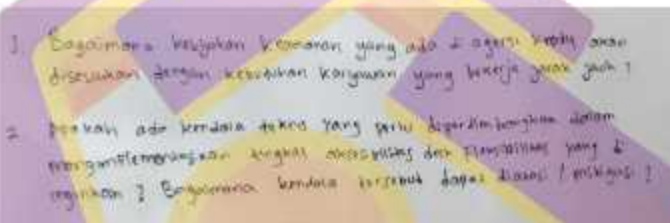 1. Bagaimana kebijakan keamanan yang ada di agensi akan
disesuaikan dengan kebutuhan karyawan yang bekerja jarak jauh ?
2. Apakah ada kendala teknis yang perlu dipertimbangkan dalam
mengimplementasikan tingkat aksesibilitas dan fleksibilitas yang di
inginkan ? Bagaimana kendala tersebut dapat diatasi / mitigasi ?